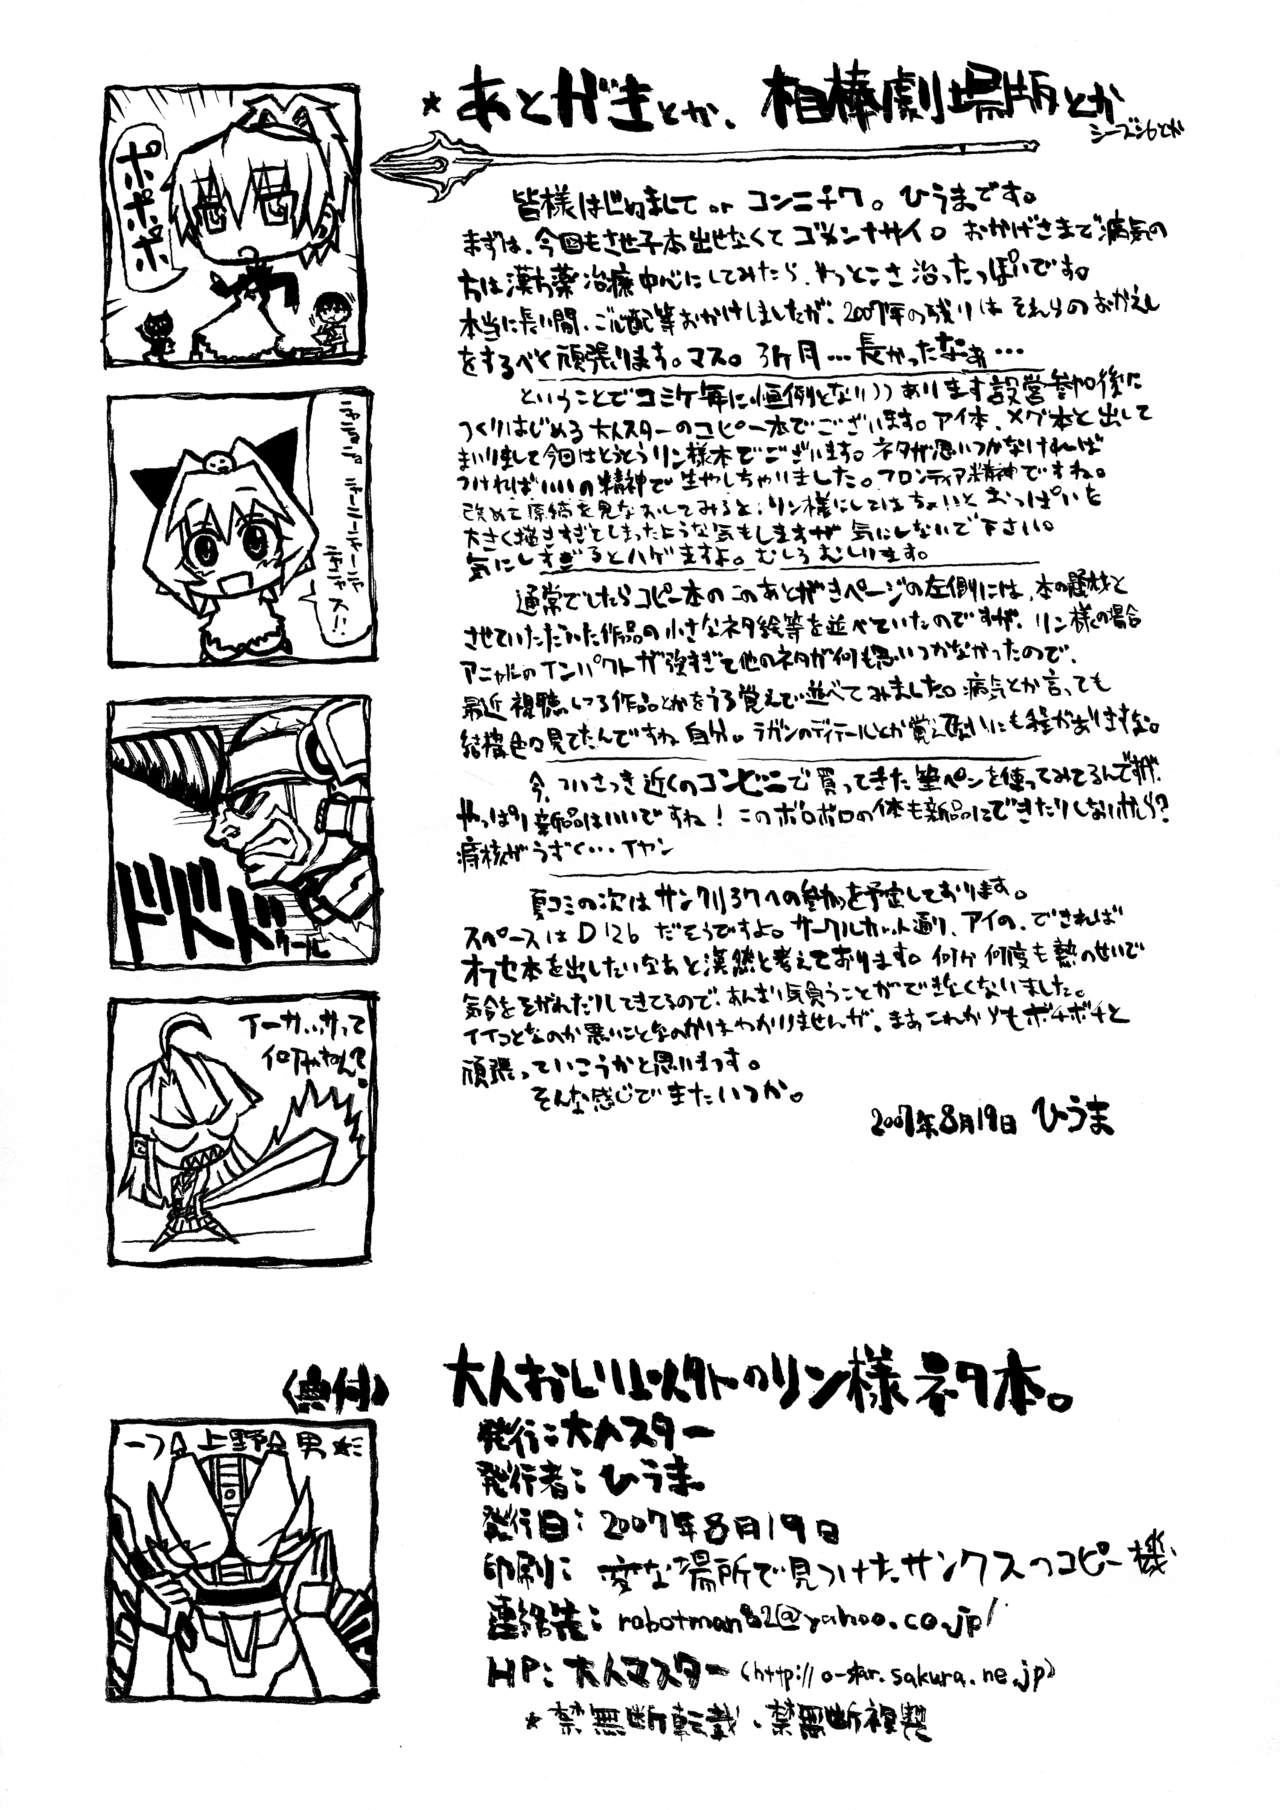 ★あとがきとか、相棒劇場版とか
シーズン6とか
皆様はじめまして or コンニチワ。ひうまです。
まずは、今回もさせ子本出せなくてゴメンナサイ。おかげさまで病気の
方は漢方薬治療中心にしてみたら、やっとこさ治ったっぽいです。
本当に長い間、ご心配等おかけしましたが、2007年の残りはそれらのおかえし
をするべく頑張ります。マス。3ヶ月…長かったなぁ…
ということでコミケ毎に恒例となりつつあります設営参加後に
つくりはじめる大人スターのコピー本でございます。アイ本、メグ本と出して
まいりまして今回はとうとうリン様本でございます。ネタが思いつかなければ
つければいいの精神で生やしちゃいました。フロンティア精神ですね。
改めて原稿を見なおしてみると、リン様にしてはちょいとおっぱいを
大きく描きすぎてしまったような気もしますが気にしないで下さい。
気にしすぎるとハゲますよ。むしろむしります。
通常でしたらコピー本のこのあとがきページの左側には、本の題材と
させていただいた作品の小さなネタ絵等を並べていたのですが、リン様の場合
アニャルのインパクトが強すぎて他のネタが何も思いつかなかったので、
最近視聴してる作品とかをうろ覚えで並べてみました。病気とか言っても
結構色々見てたんですね自分。ラガンのディテールとか覚えてないにも程がありますな。
今、ついさっき近くのコンビニで買ってきた筆ペンを使ってみてるんですが、
やっぱり新品はいいですね！このボロボロの体も新品にできたりしないかしら？
痔核がうずく…イヤン
夏コミの次はサンクリ37への参加を予定しております。
スペースはD12b だそうですよ。サークルカット通り、アイの、できれば
オフセ本を出したいなあと漠然と考えております。何分何度も熱のせいで
気合をそがれたりしてきてるので、あんまり気負うことができなくなりました。
イイコトなのか悪いことなのかはわかりませんが、まあこれからもボチボチと
頑張っていこうかと思います。
そんな感じでまたいつか。
2007年8月19日 ひうま
ポポポ
ドドド
イーガ
って
何やねん？
〈奥付〉
大人おしり以外のリン様ネタ本。
発行：大人スター
発行者：ひうま
発行日：2007年8月19日
印刷：変な場所で見つけたサンクスのコピー機
連絡先：robotman82@yahoo.co.jp
HP：大人マスター(http://o-star.sakura.ne.jp)
★禁無断転載・禁無断複製
上野
男